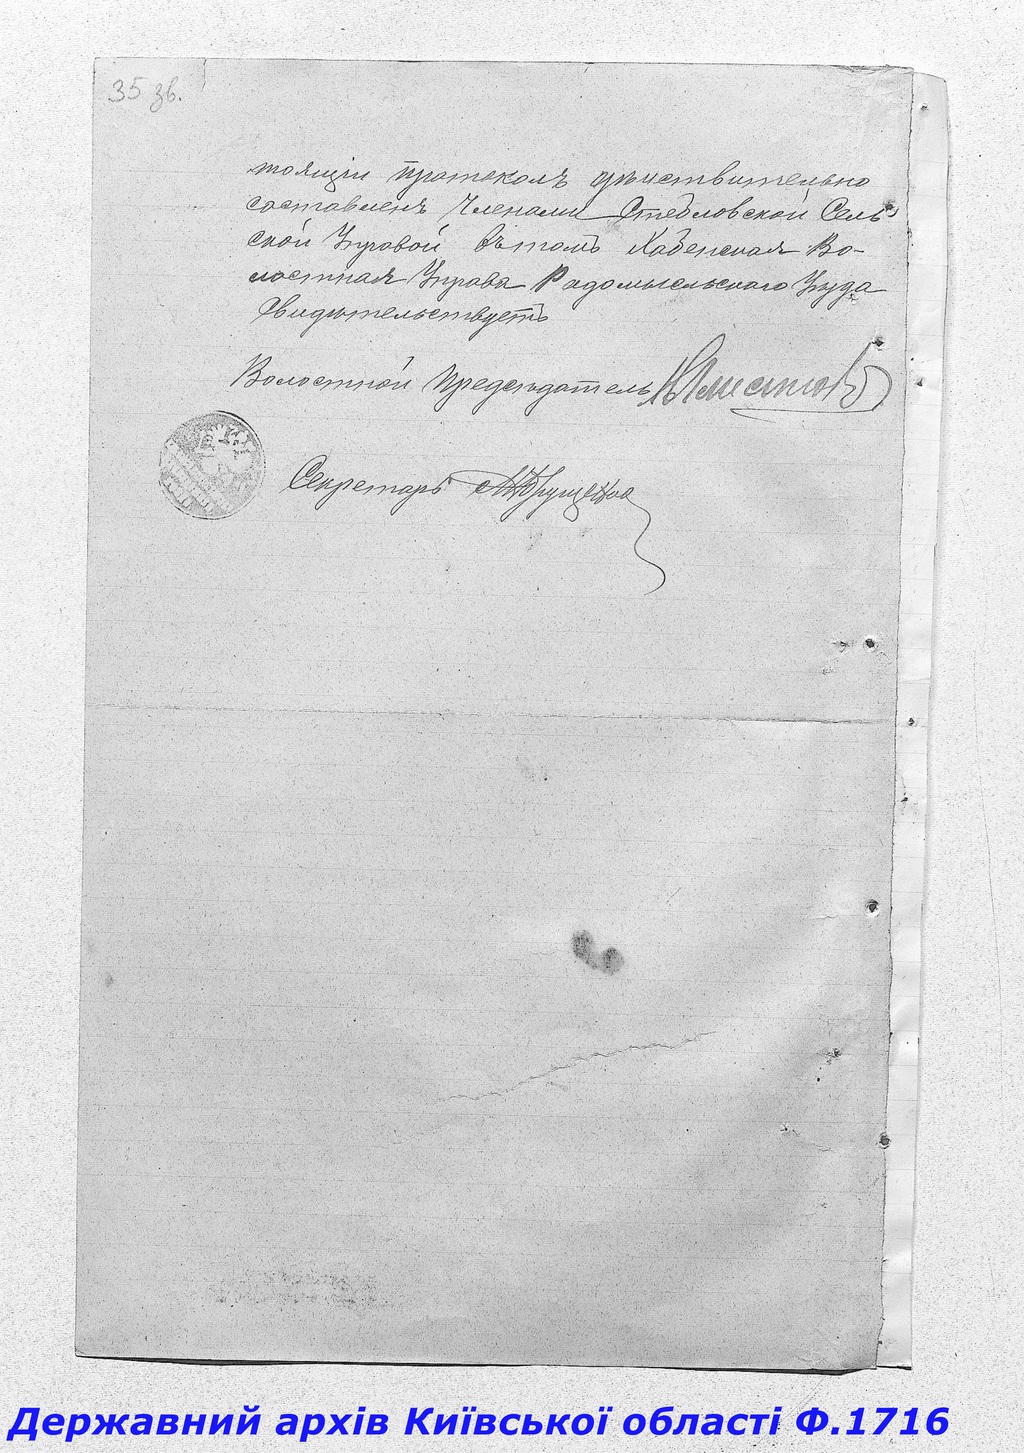 35 зв.
тоящій протоколъ дѣйствительно
составленъ Членами Стебловской Сель
ской Управой въ томъ Хабенская Во-
лостная Управа Радомысльского Уѣзда
Свидѣтельствуетъ
Волостной Предсѣдатель
Секретарь
Державний архів Київської області Ф.1716